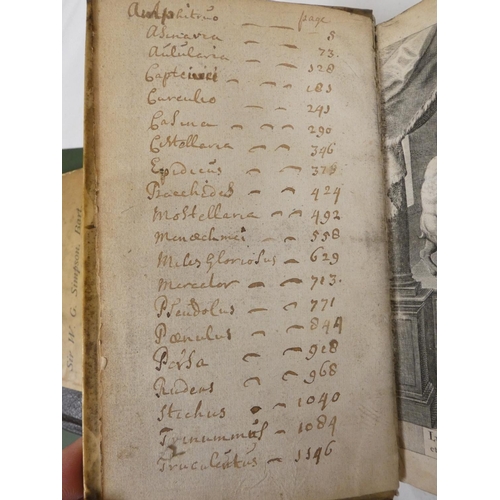 page
Amphitruo — — 5
Asinaria — — 73.
Aulularia — — 128
Capteivei — — 181
Curculio — — 241
Casina — — 290
Cistellaria — — 346
Epidicus — — 373
Bacchides — — 424
Mostellaria — — 492
Menæchmei — — 558
Miles Gloriosus — 629
Mercator — — 713.
Pseudolus — — 771
Pœnulus — — 844
Persa — — 918
Rudens — — 968
Stichus — — 1040
Trinummus — 1084
Truculentus — 1146
Sir W. G. Simpson, Bart